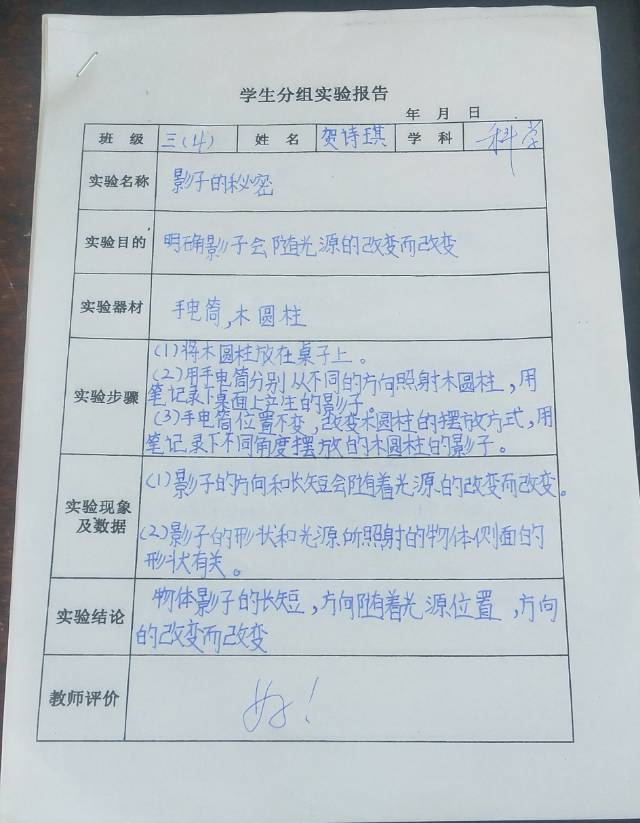 学生分组实验报告
年 月 日
班 级 三(4) 姓 名 贺诗琪 学 科 科学
实验名称 影子的秘密
实验目的 明确影子会随光源的改变而改变
实验器材 手电筒,木圆柱
实验步骤
(1)将木圆柱放在桌子上。
(2)用手电筒分别从不同的方向照射木圆柱,用
笔记录下桌面上产生的影子。
(3)手电筒位置不变,改变木圆柱的摆放方式,用
笔记录下不同角度摆放的木圆柱的影子。
实验现象
及数据
(1)影子的方向和长短会随着光源的改变而改变。
(2)影子的形状和光源所照射的物体侧面的
形状有关。
实验结论
物体影子的长短,方向随着光源位置,方向
的改变而改变
教师评价 好!